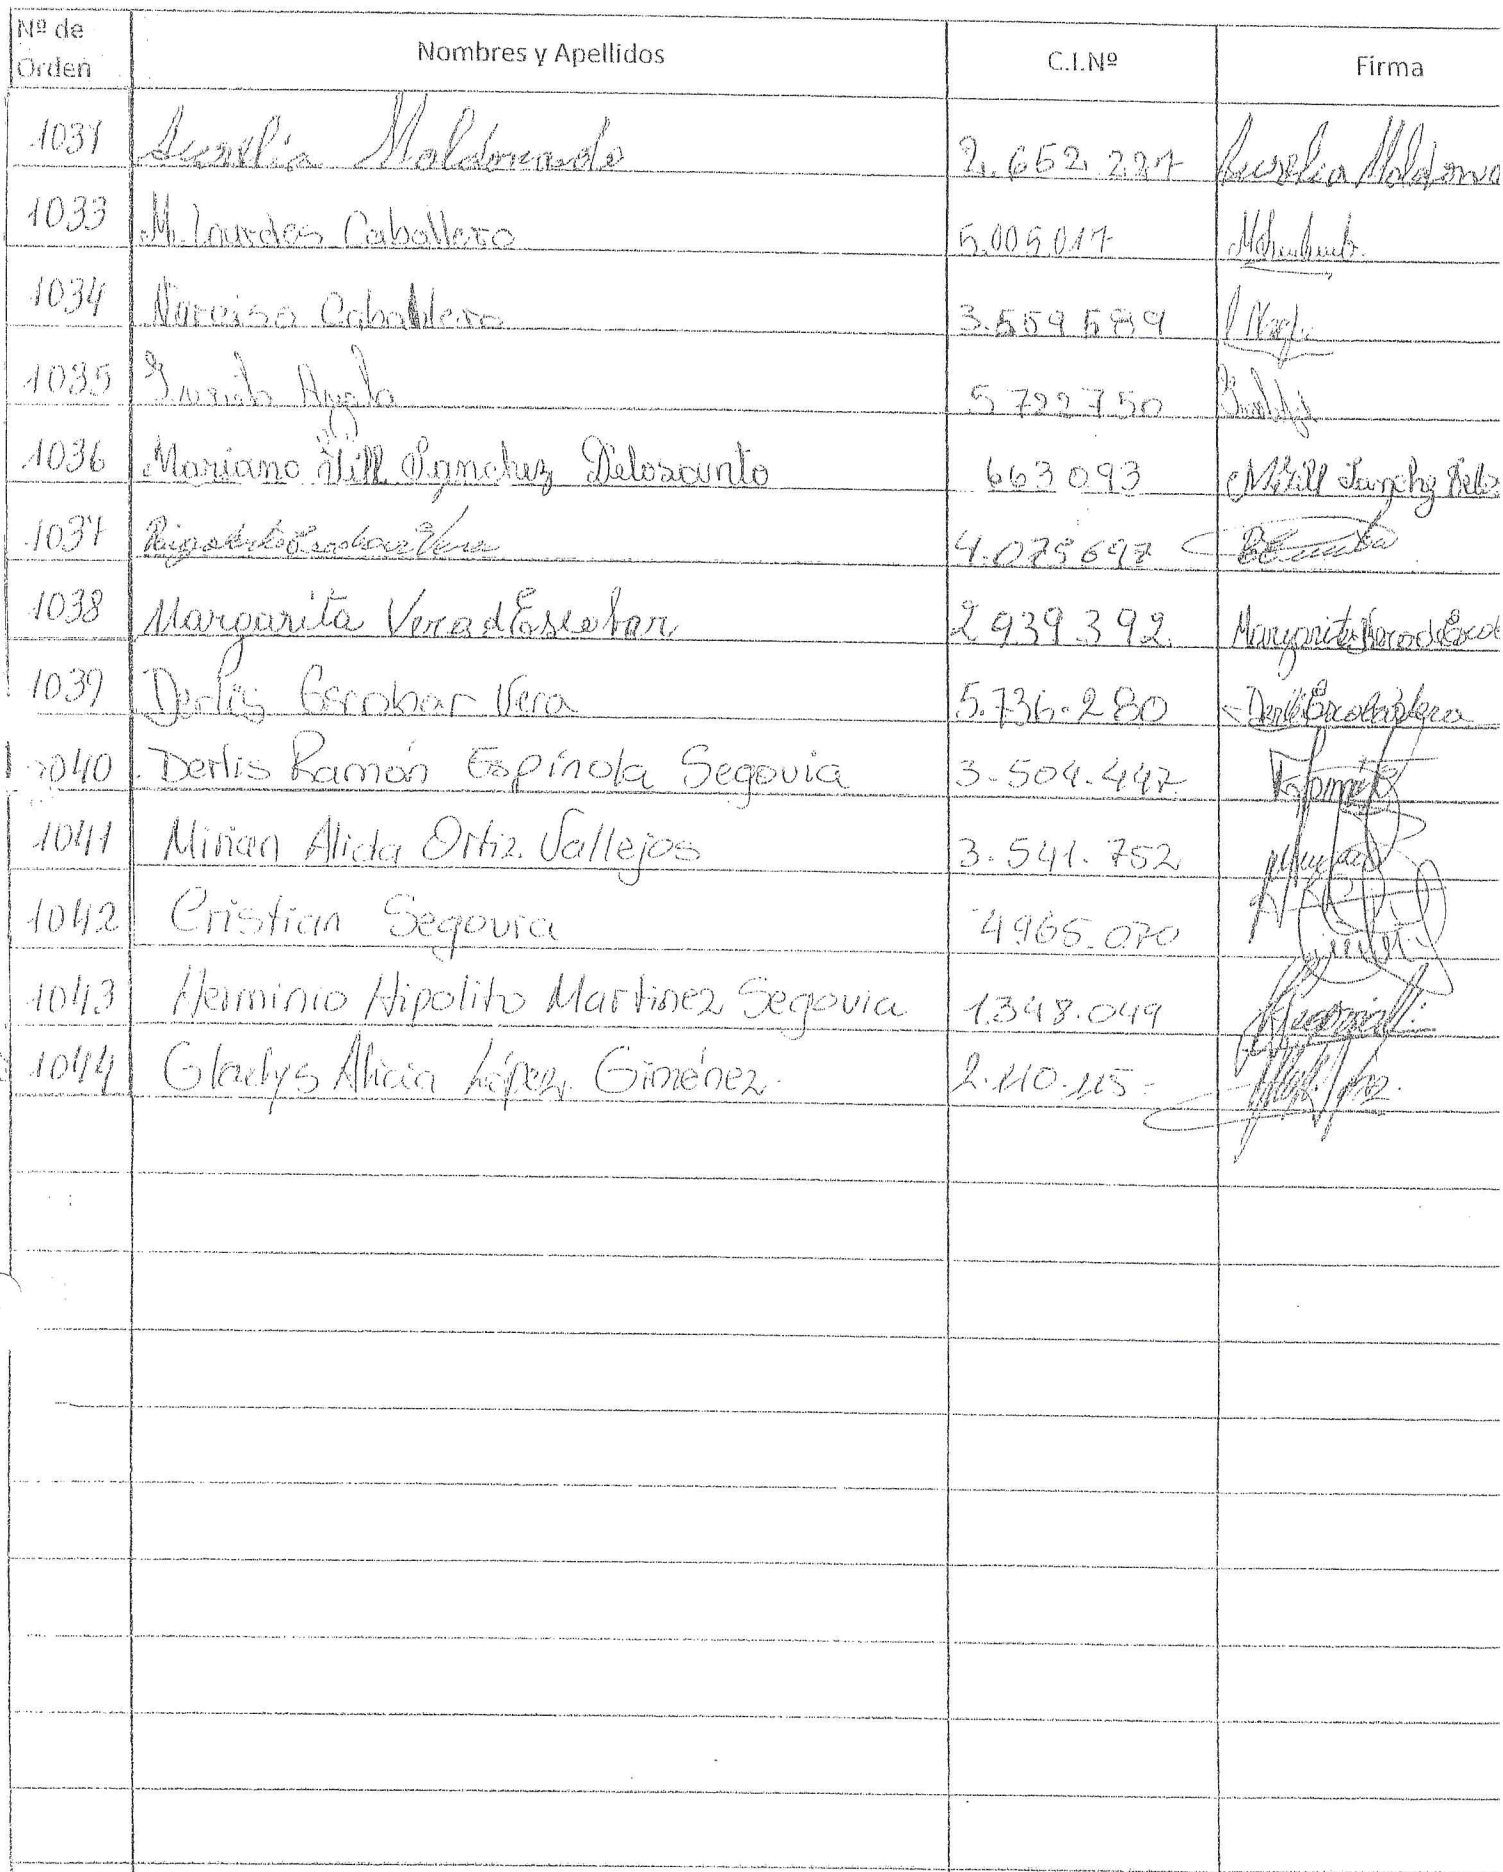 Nº de Orden Nombres y Apellidos C.I.Nº Firma
1031 Aurelia Maldonado 2.652.227 Aurelia Maldona
1033 M. Lourdes Caballero 5.005.017
1034 Narciso Caballero 3.559.589
1035 Ayala 5 799 750
1036 Mariano Hill Sanchez Delosanto 663 093
1037 Rigoberto Escobar Vera 4.075697
1038 Margarita Vera d Escobar 2 939 392 Margarita Vera d Escob
1039 Derlis Escobar Vera 5.736.280 Derlis Escobar Vera
1040 Derlis Ramón Espínola Segovia 3-504.447
1041 Mirian Alicia Ortiz Vallejos 3.541.752
1042 Cristian Segovia 4965.070
1043 Herminio Hipolito Martinez Segovia 1.348.049
1044 Gladys Alicia López Giménez. 2.110.115-